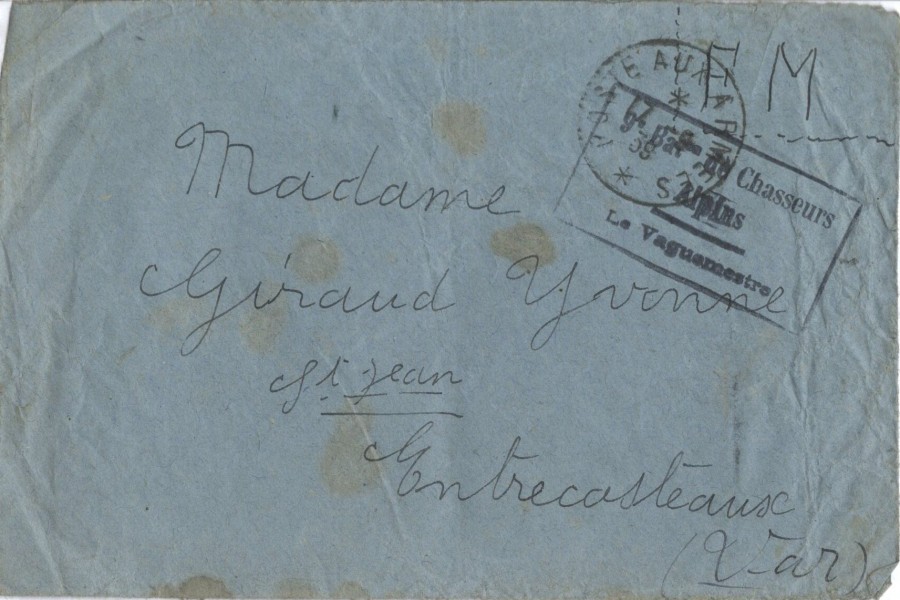 F M
POSTE AUX ARMÉES
de Chasseurs
Alpins
Le Vaguemestre
Madame
Giraud Yvonne
St Jean
Entrecasteaux
(Var)